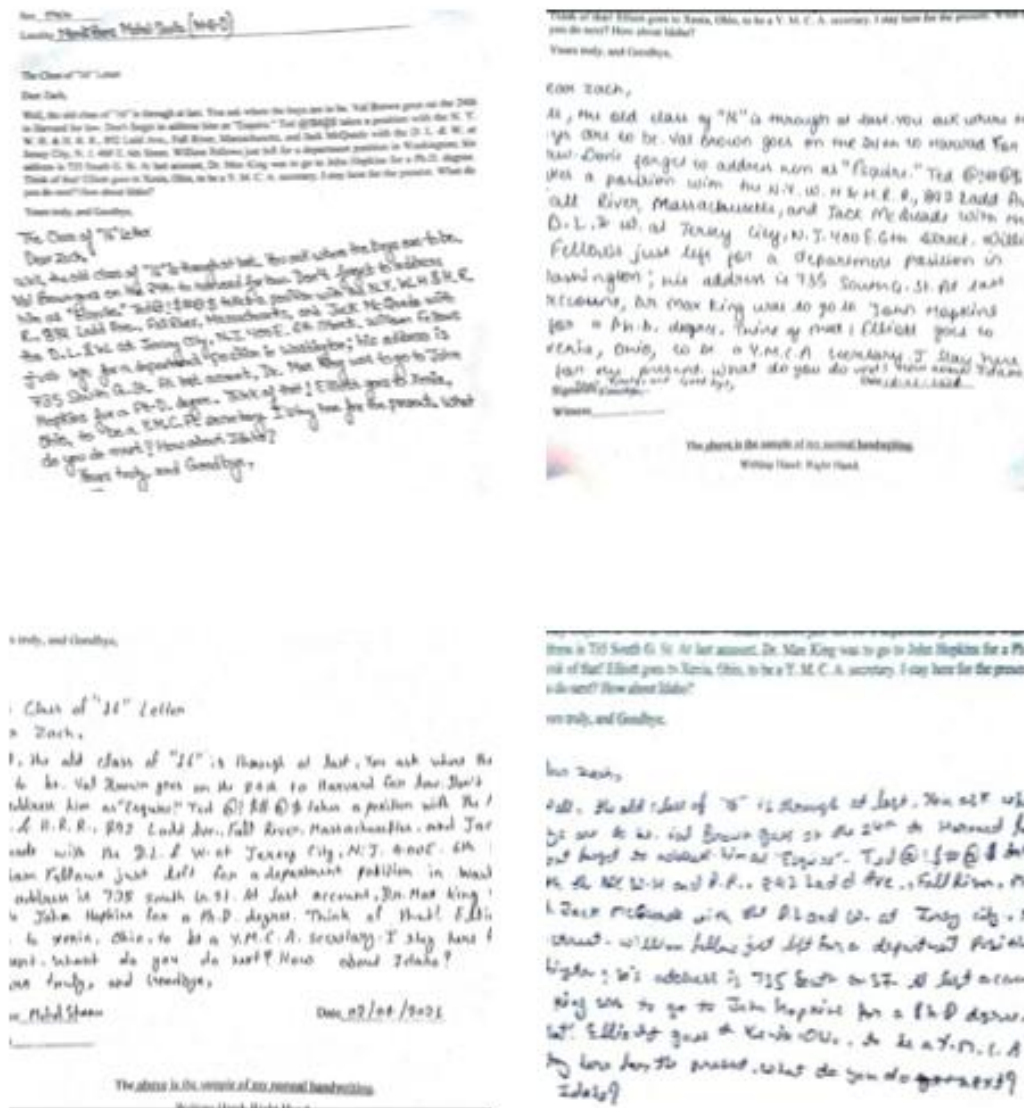 The Class of "16" Letter
Dear Zach,
Well, the old class of "16" is through at last. You ask where the boys are to be. Val Brown goes on the 24th
to Harvard for law. Don't forget to address him as "Esquire." Ted @!$#@$ takes a position with the N. Y.
W. H. & H. R. R., 892 Ladd Ave., Fall River, Massachusetts, and Jack McQuade with the D. L. & W. at
Jersey City, N. J. 400 E. 6th Street. William Fellows just left for a department position in Washington; his
address is 735 South G. St. At last account, Dr. Max King was to go to John Hopkins for a Ph.D. degree.
Think of that! Elliott goes to Xenia, Ohio, to be a Y. M. C. A. secretary. I stay here for the present. What do
you do next? How about Idaho?
Yours truly, and Goodbye,
The Class of "16" Letter
Dear Zach,
Well, the old class of "16" is through at last. You ask where the boys are to be.
R., 892 Ladd Ave., Fall River, Massachusetts, and Jack McQuade with
the D.L. & W. at Jersey City, N.J. 400 E. 6th Street. William Fellows
just left for a department position in Washington; his address is
735 South G. St. At last account, Dr. Max King was to go to John
Hopkins for a Ph.D. degree. Think of that! Elliott goes to Xenia,
Ohio, to be a Y.M.C.A. secretary. I stay here for the present. What
do you do next? How about Idaho?
Yours truly, and Goodbye,
Think of that! Elliott goes to Xenia, Ohio, to be a Y. M. C. A. secretary. I stay here for the present. What
you do next? How about Idaho?
Yours truly, and Goodbye,
ear Zach,
ll, the old class of "16" is through at last. You ask where
ys are to be. Val Brown goes on the 24th to Harvard for
law. Don't forget to address him as "Esquire." Ted
kes a position with the N.Y. W. H & H. R. R., 892 Ladd Av
all River, Massachusetts, and Jack McQuade with
D. L. & W. at Jersey City, N. J. 400 E. 6th Street. Willi
Fellows just left for a department position in
ashington; his address is 735 South G. St. At last
account, Dr Max King was to go to John Hopkins
for a Ph.D. degree. Think of that! Elliott goes to
Xenia, Ohio, to be a Y.M.C.A secretary. I stay here
for the present. What do you do next? How about Idaho
Date
Witness
The above is the sample of my normal handwriting.
Writing Hand: Right Hand
s truly, and Goodbye,
Class of "16" Letter
Zach,
, the old class of "16" is through at last. You ask where the
to be. Val Brown goes on the 24th to Harvard for law. Don't
address him as "Esquire!" Ted takes a position with the
& H.R.R., 892 Ladd Ave., Fall River, Massachusetts, and Jac
uade with the D.L. & W. at Jersey City, N.J. 400 E. 6th
iam Fellows just left for a department position in Wash
address is 735 South G. St. At last account, Dr. Max King
John Hopkins for a Ph.D. degree. Think of that! Elli
to Xenia, Ohio, to be a Y.M.C.A. secretary. I stay here f
sent. What do you do next? How about Idaho?
ours truly, and Goodbye,
Date
The above is the sample of my normal handwriting.
Writing Hand: Right Hand
dress is 735 South G. St. At last account, Dr. Max King was to go to John Hopkins for a Ph
nk of that! Elliott goes to Xenia, Ohio, to be a Y. M. C. A. secretary. I stay here for the present
u do next? How about Idaho?
urs truly, and Goodbye,
Zach,
ell, the old class of "16" is through at last. You ask wh
ys are to be. Val Brown goes on the 24th to Harvard
forget to address him as "Esquire". Ted
892 Ladd Ave., Fall River,
Jack McQuade with the D.L and W. at Jersey City
street. William Fellows just left for a department
address is 735 South St. At last
King was to go to John Hopkins for a Ph.D degree
Elliott goes to Xenia to be a Y.M.C.A
here for the present. What do you do next?
Idaho?